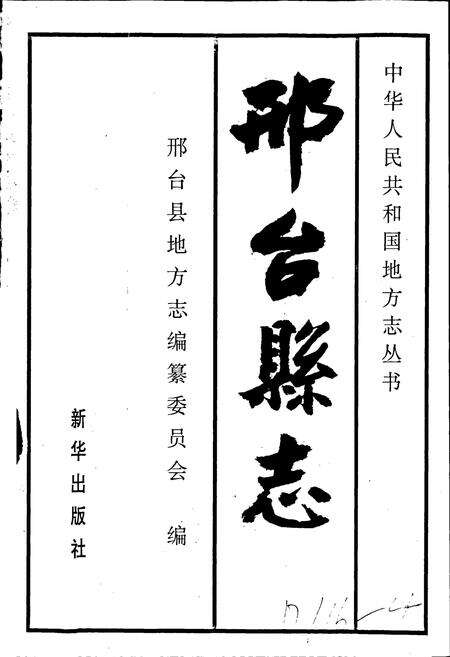 中华人民共和国地方志丛书
邢台縣志
邢台县地方志编纂委员会 编
新华出版社